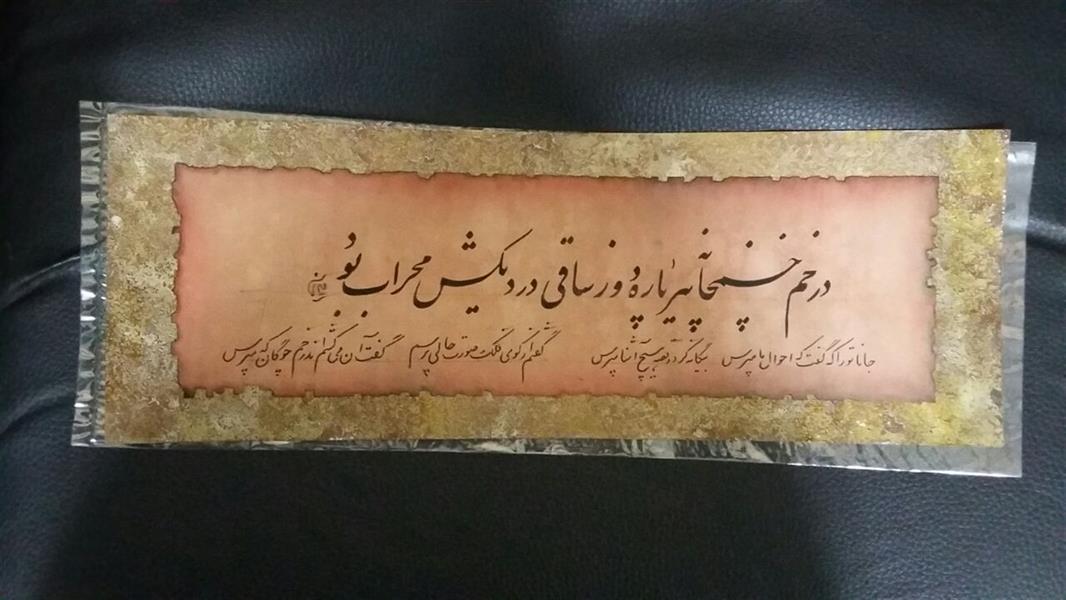 در خم خمخانه پیر پاره دوز ساقی دردیکش محراب بود
جانا تو را که گفت که احوال ما مپرس بیگانه گرد و قصه هیچ آشنا مپرس گفتم ز کوی فلک صورت حالی پرسم گفت آن می کشم اندر خم چوگان که مپرس